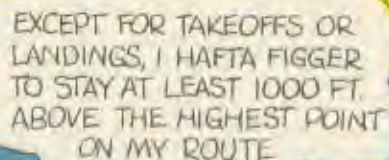 EXCEPT FOR TAKEOFFS OR
LANDINGS, I HAFTA FIGGER
TO STAY AT LEAST 1000 FT.
ABOVE THE HIGHEST POINT
ON MY ROUTE